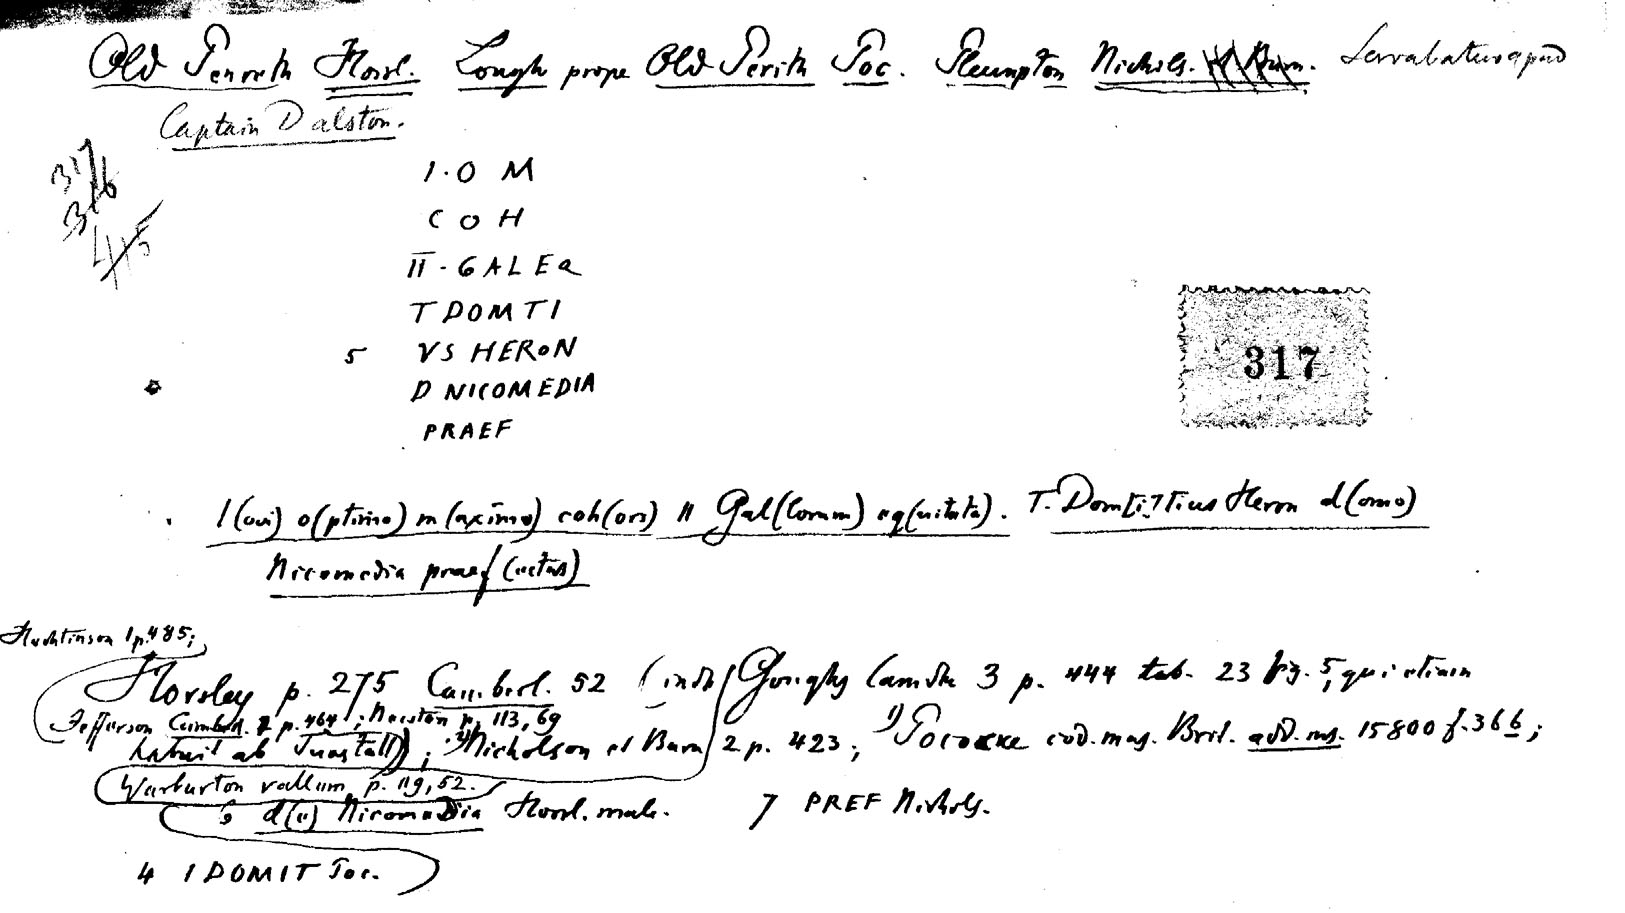 Old Penreth Horsl. Lough prope Old Perith Poc. Plumpton Nichols. et Burn. Servabatur apud
Captain Dalston.
317
316
415
I·O M
C O H
II·GALEQ
T DOMTI
5 VS HERON
D NICOMEDIA
PRAEF
317
I(ovi) o(ptimo) m(aximo) coh(ors) II Gal(lorum) eq(uitata). T. Dom[i]tius Heron d(omo)
Nicomedia praef(ectus)
Huchtinson 1 p. 485;
Horsley p. 275 Cumberl. 52 (inde Goughs Camden 3 p. 444 tab. 23 fig. 5, qui etiam
Jefferson Cumberl. p. 464; p. 113, 69
habuit ab Tunstall); 2) Nicholson et Burn 2 p. 423; 1) Pococke cod. mus. Brit. add. ms. 15800 f. 366;
Warburton vallum p. 119, 52.
6 d(e) Nicomedia Horsl. male. 7 PREF Nichols.
4 I DOMIT Poc.